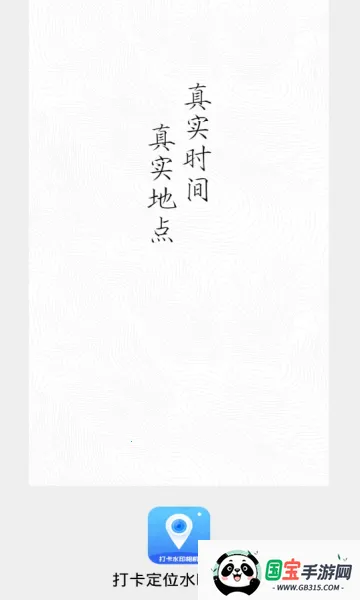 真实时间
真实地点
打卡水印相机
打卡定位水
国宝手游网
WWW.GB315.COM